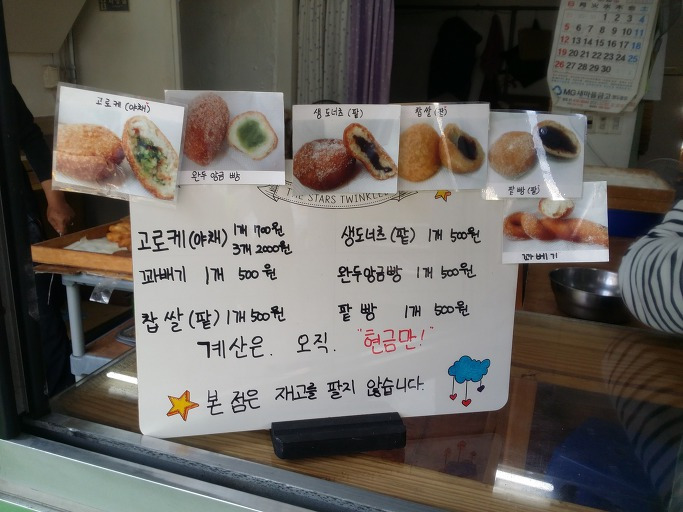 고로케 (야채)
완두 앙금 빵
생도너츠 (팥)
찹쌀 (팥)
팥빵 (팥)
꽈베기
THE STARS TWINKLE
고로케 (야채) 1개 700원
3개 2000원
꽈배기 1개 500원
찹쌀 (팥) 1개 500원
생도너츠 (팥) 1개 500원
완두앙금빵 1개 500원
팥빵 1개 500원
계산은. 오직. "현금만!"
본 점은 재고를 팔지 않습니다.
1 2 3 4
5 6 7 8 9 10 11
12 13 14 15 16 17 18
19 20 21 22 23 24 25
26 27 28 29 30
MG새마을금고